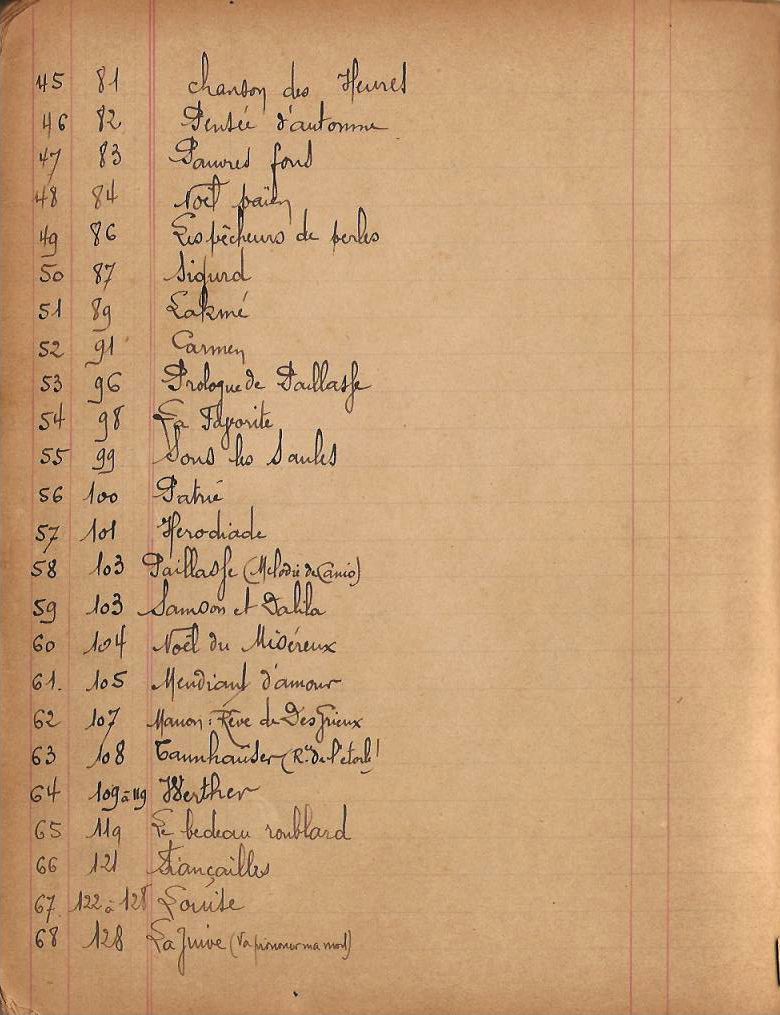 45 81 Chanson des Heures
46 82 Pensée d'automne
47 83 Pauvres fous
48 84 Noël païen
49 86 Les pêcheurs de perles
50 87 Sigurd
51 89 Lakmé
52 91 Carmen
53 96 Prologue de Paillasse
54 98 La Favorite
55 99 Sous les Saules
56 100 Patrie
57 101 Herodiade
58 103 Paillasse (Mélodie de Canio)
59 103 Samson et Dalila
60 104 Noël du Miséreux
61. 105 Mendiant d'amour
62 107 Manon : Rêve de Des Grieux
63 108 Tannhaüser (R.ce de l'étoile)
64 109 à 119 Werther
65 119 Le bedeau roublard
66 121 Fiançailles
67. 122 à 128 Louise
68 128 La Juive (Va prononcer ma mort)